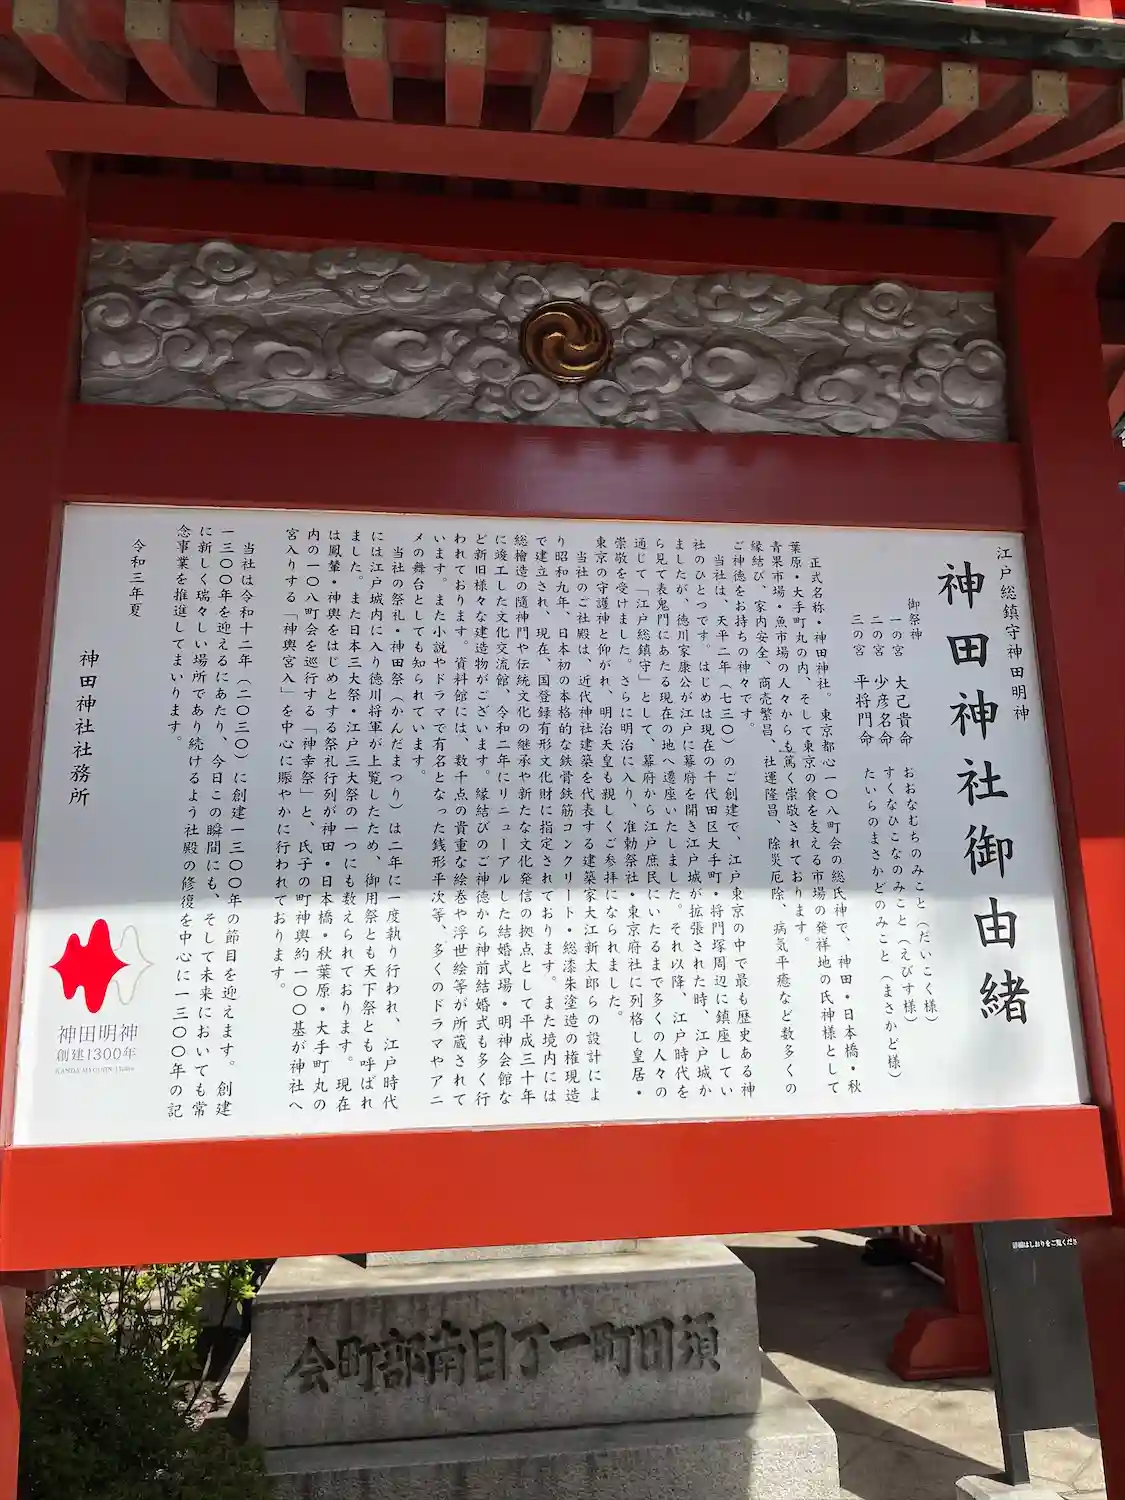 江戸総鎮守神田明神
神田神社御由緒
御祭神
一の宮 大己貴命 おおなむちのみこと(だいこく様)
二の宮 少彦名命 すくなひこなのみこと(えびす様)
三の宮 平将門命 たいらのまさかどのみこと(まさかど様)
正式名称・神田神社。東京都心一〇八町会の総氏神で、神田・日本橋・秋
葉原・大手町丸の内、そして東京の食を支える市場の発祥地の氏神様として
青果市場・魚市場の人々からも篤く崇敬されております。
縁結び、家内安全、商売繁昌、社運隆昌、除災厄除、病気平癒など数多くの
ご神徳をお持ちの神々です。
当社は、天平二年(七三〇)のご創建で、江戸東京の中で最も歴史ある神
社のひとつです。はじめは現在の千代田区大手町・将門塚周辺に鎮座してい
ましたが、徳川家康公が江戸に幕府を開き江戸城が拡張された時、江戸城か
ら見て表鬼門にあたる現在の地へ遷座いたしました。それ以降、江戸時代を
通じて「江戸総鎮守」として、幕府から江戸庶民にいたるまで多くの人々の
崇敬を受けました。さらに明治に入り、准勅祭社・東京府社に列格し皇居・
東京の守護神と仰がれ、明治天皇も親しくご参拝になられました。
当社のご社殿は、近代神社建築を代表する建築家大江新太郎らの設計によ
り昭和九年、日本初の本格的な鉄骨鉄筋コンクリート・総漆朱塗造の権現造
で建立され、現在、国登録有形文化財に指定されております。また境内には
総檜造の隨神門や伝統文化の継承や新たな文化発信の拠点として平成三十年
に竣工した文化交流館、令和二年にリニューアルした結婚式場・明神会館な
ど新旧様々な建造物がございます。縁結びのご神徳から神前結婚式も多く行
われております。資料館には、数千点の貴重な絵巻や浮世絵等が所蔵されて
います。また小説やドラマで有名となった銭形平次等、多くのドラマやアニ
メの舞台としても知られています。
当社の祭礼・神田祭(かんだまつり)は二年に一度執り行われ、江戸時代
には江戸城内に入り徳川将軍が上覧したため、御用祭とも天下祭とも呼ばれ
ました。また日本三大祭・江戸三大祭の一つにも数えられております。現在
は鳳輦・神輿をはじめとする祭礼行列が神田・日本橋・秋葉原・大手町丸の
内の一〇八町会を巡行する「神幸祭」と、氏子の町神輿約一〇〇基が神社へ
宮入りする「神輿宮入」を中心に賑やかに行われております。
当社は令和十二年(二〇三〇)に創建一三〇〇年の節目を迎えます。創建
一三〇〇年を迎えるにあたり、今日この瞬間にも、そして未来においても常
に新しく瑞々しい場所であり続けるよう社殿の修復を中心に一三〇〇年の記
念事業を推進してまいります。
令和三年夏
神田神社社務所
神田明神
創建1300年
須田町一丁目南部町会
詳細はしおりをご覧くださ